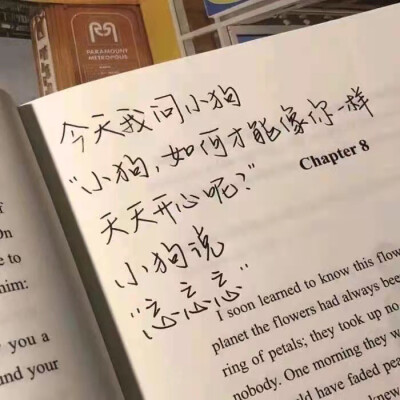 PARAMOUNT
今天我问小狗
“小狗，如何才能像你一样
天天开心呢？”
小狗说
“忘忘忘”
On
e to
him:
you a
nd your
Chapter 8
I soon learned to know this flow
planet the flowers had always bee
ring of petals; they took up no
nobody. One morning they w
ld have faded pea
knew